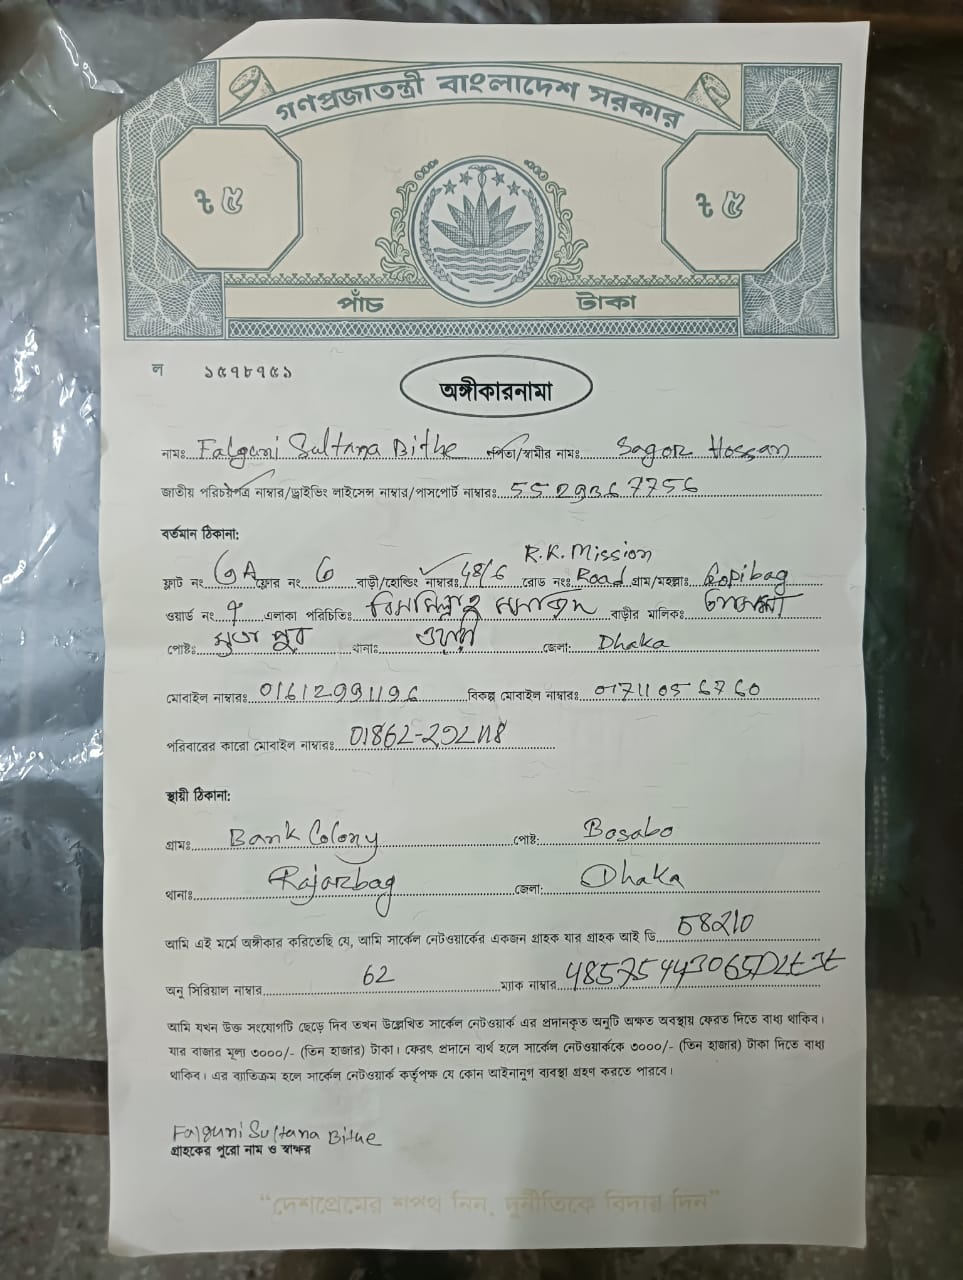 গণপ্রজাতন্ত্রী বাংলাদেশ সরকার
৳ ৫ ৳ ৫
পাঁচ টাকা
ল ১৫৭৮৭৫১
অঙ্গীকারনামা
নামঃ Falguni Sultana Bithe পিতা/স্বামীর নাম: Sagor Hossan
জাতীয় পরিচয়পত্র নাম্বার/ড্রাইভিং লাইসেন্স নাম্বার/পাসপোর্ট নাম্বারঃ 5529367756
বর্তমান ঠিকানা:
R.K. Mission
ফ্লাট নং 6A ফ্লোর নং 6 বাড়ী/হোল্ডিং নাম্বারঃ 48/6 রোড নং: Road গ্রাম/মহল্লাঃ Gopibag
ওয়ার্ড নং ৭ এলাকা পরিচিতিঃ বাড়ীর মালিকঃ
পোষ্টঃ থানাঃ ওয়ারী জেলা: Dhaka
মোবাইল নাম্বারঃ 01612991196 বিকল্প মোবাইল নাম্বারঃ 01711056760
পরিবারের কারো মোবাইল নাম্বারঃ
স্থায়ী ঠিকানা:
গ্রামঃ Bank Colony পোষ্ট: Bosabo
থানাঃ Rajarbag জেলা: Dhaka
আমি এই মর্মে অঙ্গীকার করিতেছি যে, আমি সার্কেল নেটওয়ার্কের একজন গ্রাহক যার গ্রাহক আই ডি 58210
অনু সিরিয়াল নাম্বার 62 ম্যাক নাম্বার
আমি যখন উক্ত সংযোগটি ছেড়ে দিব তখন উল্লেখিত সার্কেল নেটওয়ার্ক এর প্রদানকৃত অনুটি অক্ষত অবস্থায় ফেরত দিতে বাধ্য থাকিব।
যার বাজার মূল্য ৩০০০/- (তিন হাজার) টাকা। ফেরৎ প্রদানে ব্যর্থ হলে সার্কেল নেটওয়ার্ককে ৩০০০/- (তিন হাজার) টাকা দিতে বাধ্য
থাকিব। এর ব্যতিক্রম হলে সার্কেল নেটওয়ার্ক কর্তৃপক্ষ যে কোন আইনানুগ ব্যবস্থা গ্রহণ করতে পারবে।
Falguni Sultana Bithe
গ্রাহকের পুরো নাম ও স্বাক্ষর
“দেশপ্রেমের শপথ নিন, দুর্নীতিকে বিদায় দিন”